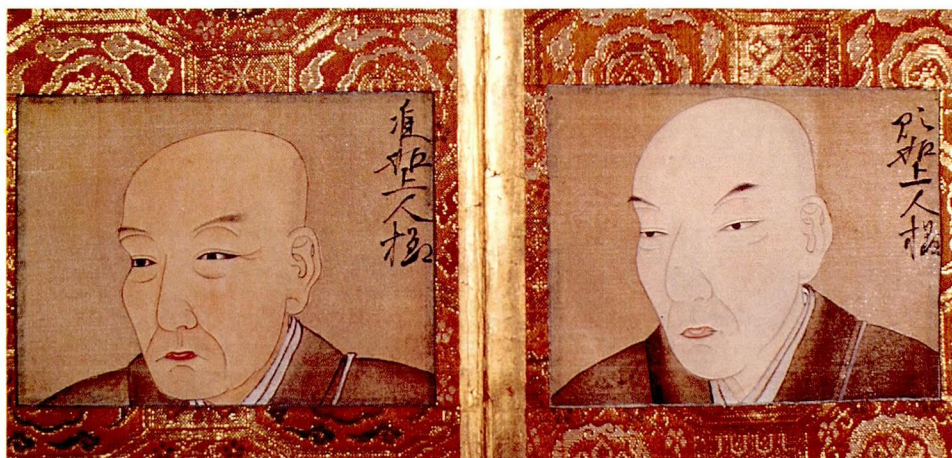 顕如上人様
准如上人様